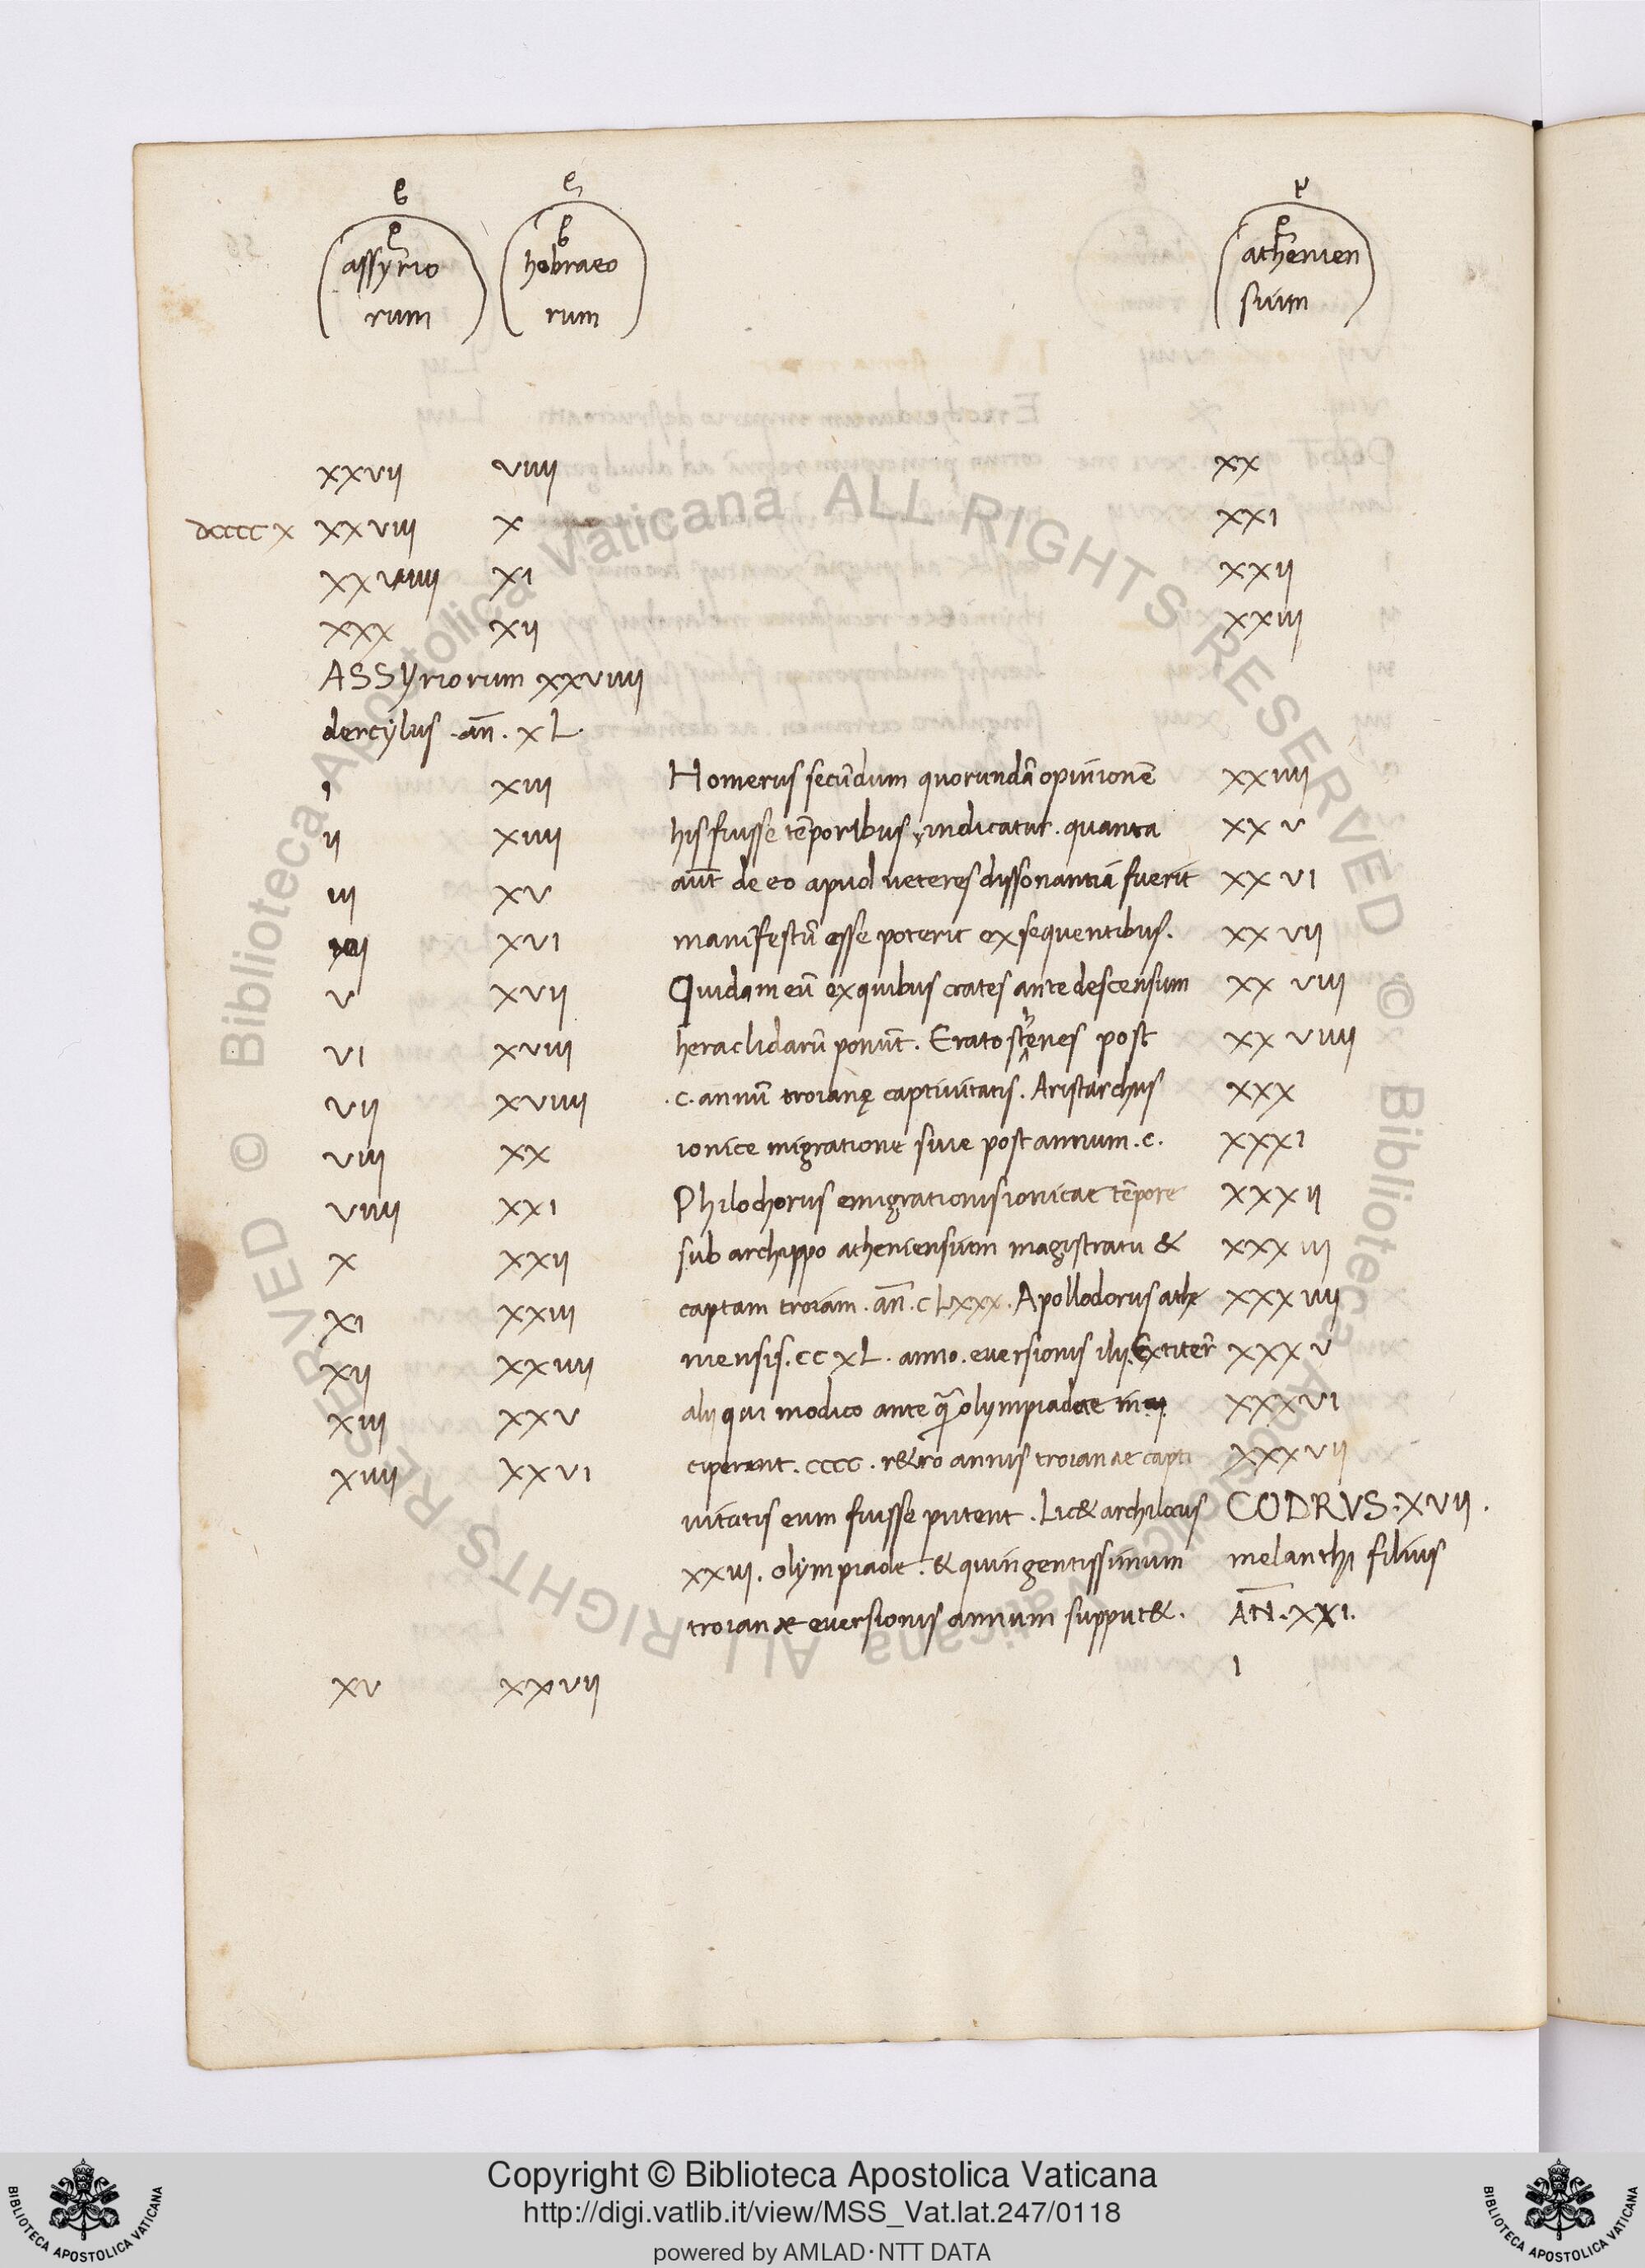 assyrio rum hebraeo rum athenien sium
xxvii viiii xx
dccccx xxviii x xxi
xxviiii xi xxii
xxx xii xxiii
ASSyriorum xxviiii
dercylus .an̄. xL.
i xiii Homerus secūdum quorundā opinionē xxiiii
ii xiiii his fuisse tēporibus, indicatur. quanta xxv
iii xv aut̄ de eo apud ueteres dissonantiā fuerit xxvi
xvi manifestū esse poterit ex sequentibus. xxvii
v xvii Quidam eū ex quibus crates ante descensum xxviii
vi xviii heraclidarū ponunt̄. Eratosthenes post xxviiii
vii xviiii .c. annū troianę captiuitatis. Aristarchus xxx
viii xx ionice migratione siue post annum .c. xxxi
viiii xxi Philochorus emigrationis ionicae tēpore xxxii
x xxii sub archippo atheniensium magistratu & xxxiii
xi xxiii captam troiam. an̄. cLxxx. Apollodorus athe xxxiiii
xii xxiiii niensis. ccxL. anno. euersionis ilii. Extiter̄ xxxv
xiii xxv alii qui modico ante q̄ olympiadae in xxxvi
xiiii xxvi ciperent. cccc. r&ro annis troianae capti xxxvii
uitatis eum fuisse putent. Lic& archilocus CODRVS. xvii.
xxiii. olympiade. & quingentissimum melanthi filius
troianae euersionis annum supput&. AN̄. xxi.
xv xxvii i
Copyright © Biblioteca Apostolica Vaticana
http://digi.vatlib.it/view/MSS_Vat.lat.247/0118
powered by AMLAD·NTT DATA
BIBLIOTECA APOSTOLICA VATICANA
BIBLIOTECA APOSTOLICA VATICANA
© Biblioteca Apostolica Vaticana ALL RIGHTS RESERVED © Biblioteca Apostolica Vaticana ALL RIGHTS RESERVED